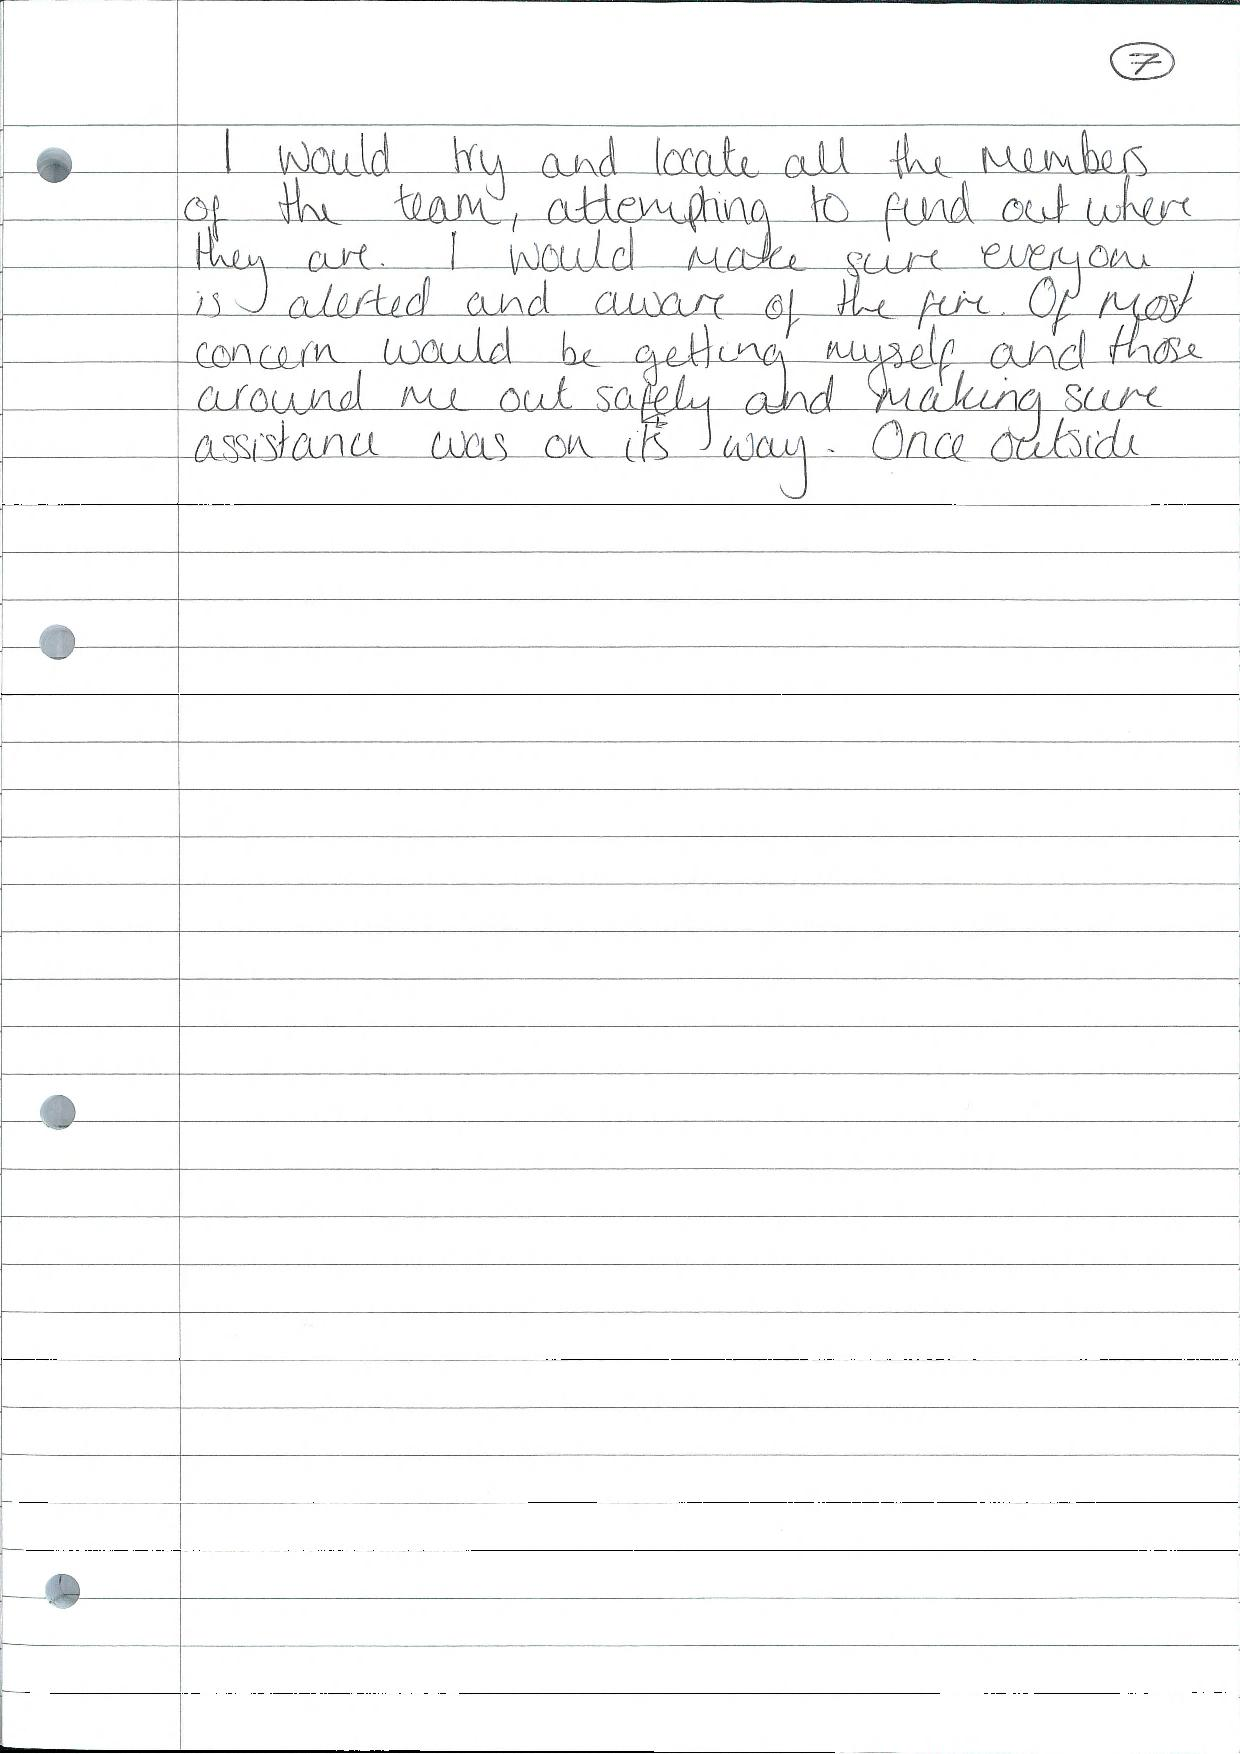 7
I would try and locate all the members
of the team, attempting to find out where
they are. I would make sure everyone
is alerted and aware of the fire. Of most
concern would be getting myself and those
around me out safely and making sure
assistance was on its way. Once outside